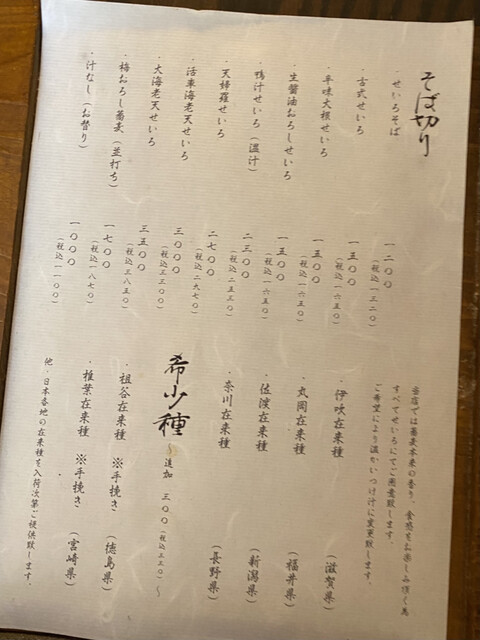 そば切り
・せいろそば 一二〇〇(税込一三二〇)
・古式せいろ 一五〇〇(税込一六五〇)
・辛味大根せいろ 一五〇〇(税込一六五〇)
・生醤油おろしせいろ 一五〇〇(税込一六五〇)
・鴨汁せいろ(温汁) 二三〇〇(税込二五三〇)
・天婦羅せいろ 二七〇〇(税込二九七〇)
・活車海老天せいろ 三〇〇〇(税込三三〇〇)
・大海老天せいろ 三五〇〇(税込三八五〇)
・梅おろし蕎麦(並打ち) 一七〇〇(税込一八七〇)
・汁なし(お替り) 一〇〇〇(税込一一〇〇)
当店では蕎麦本来の香り、食感をお楽しみ頂く為
すべてせいろにてご用意致します。
ご希望により温かいつけ汁に変更致します。
・伊吹在来種 (滋賀県)
・丸岡在来種 (福井県)
・佐渡在来種 (新潟県)
・奈川在来種 (長野県)
希少種 〜追加 三〇〇(税込三三〇)〜
・祖谷在来種 ※手挽き (徳島県)
・椎葉在来種 ※手挽き (宮崎県)
他・日本各地の在来種を入荷次第ご提供致します。